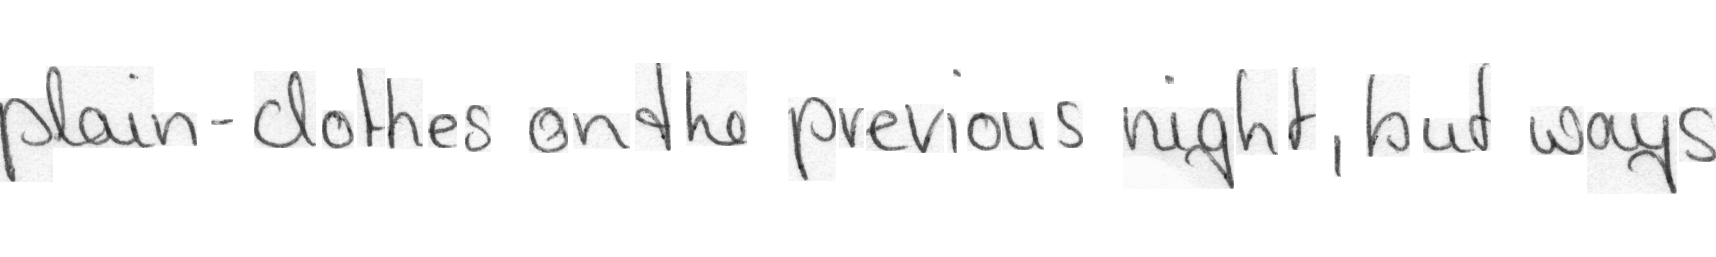 plain-clothes on the previous night, but ways